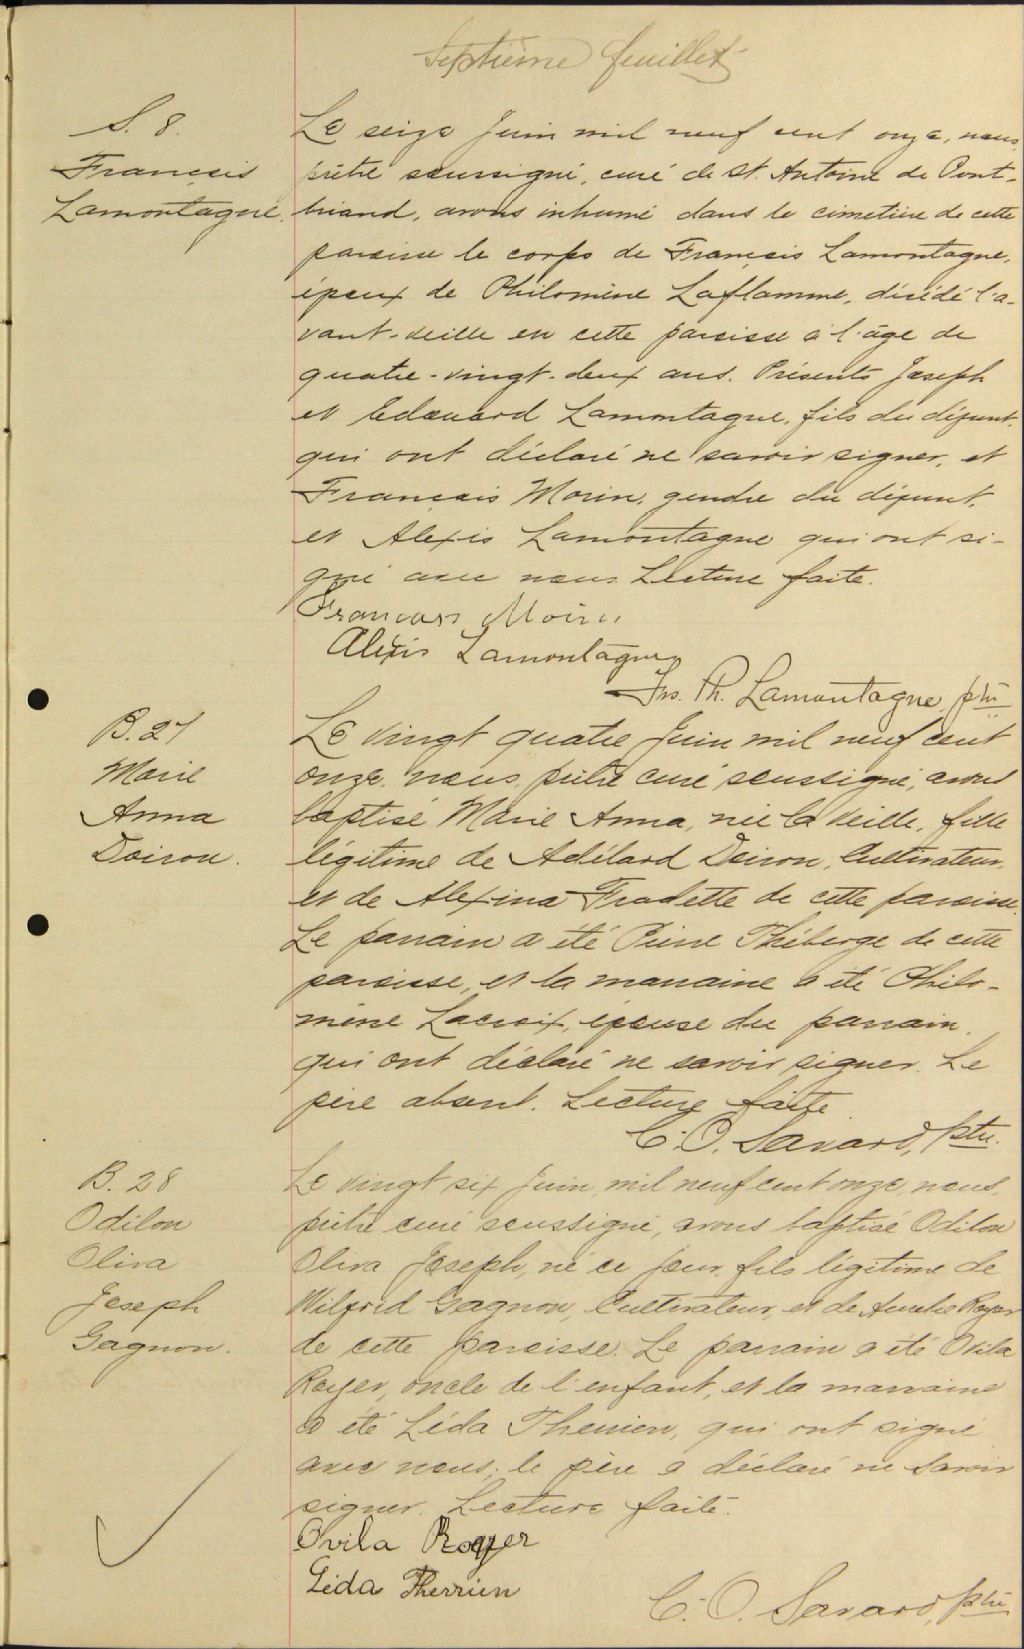 Septième feuillet
S. 8.
François
Lamontagne.
Le seize Juin mil neuf cent onze, nous,
prêtre soussigné, curé de St. Antoine de Pont-
briand, avons inhumé dans le cimetière de cette
paroisse le corps de François Lamontagne,
époux de Philomène Laflamme, décédé l'a-
vant-veille en cette paroisse à l'âge de
quatre-vingt-deux ans. Présents Joseph
et Edouard Lamontagne, fils du défunt,
qui ont déclaré ne savoir signer, et
François Morin, gendre du défunt,
et Alexis Lamontagne qui ont si-
gné avec nous. Lecture faite.
Francois Morin
Alexis Lamontagne
Frs. Ph. Lamontagne, ptre
B. 27
Marie
Anna
Doiron.
Le vingt quatre Juin mil neuf cent
onze, nous, prêtre curé soussigné, avons
baptisé Marie Anna, née la veille, fille
légitime de Adélard Doiron, Cultivateur,
et de Alexina Fradette de cette paroisse.
Le parrain a été Pierre Théberge de cette
paroisse, et la marraine a été Philo-
mène Lacroix, épouse du parrain,
qui ont déclaré ne savoir signer. Le
père absent. Lecture faite.
C. O. Savard, ptre.
B. 28
Odilon
Oliva
Joseph
Gagnon.
Le vingt six Juin, mil neuf cent onze, nous,
prêtre curé soussigné, avons baptisé Odilon
Oliva Joseph, né ce jour, fils légitime de
Wilfrid Gagnon, Cultivateur, et de Aurélie Royer
de cette paroisse. Le parrain a été Ovila
Royer, oncle de l'enfant, et la marraine
a été Léda Therrien, qui ont signé
avec nous; le père a déclaré ne savoir
signer. Lecture faite.
Ovila Royer
Léda Therrien
C. O. Savard, ptre